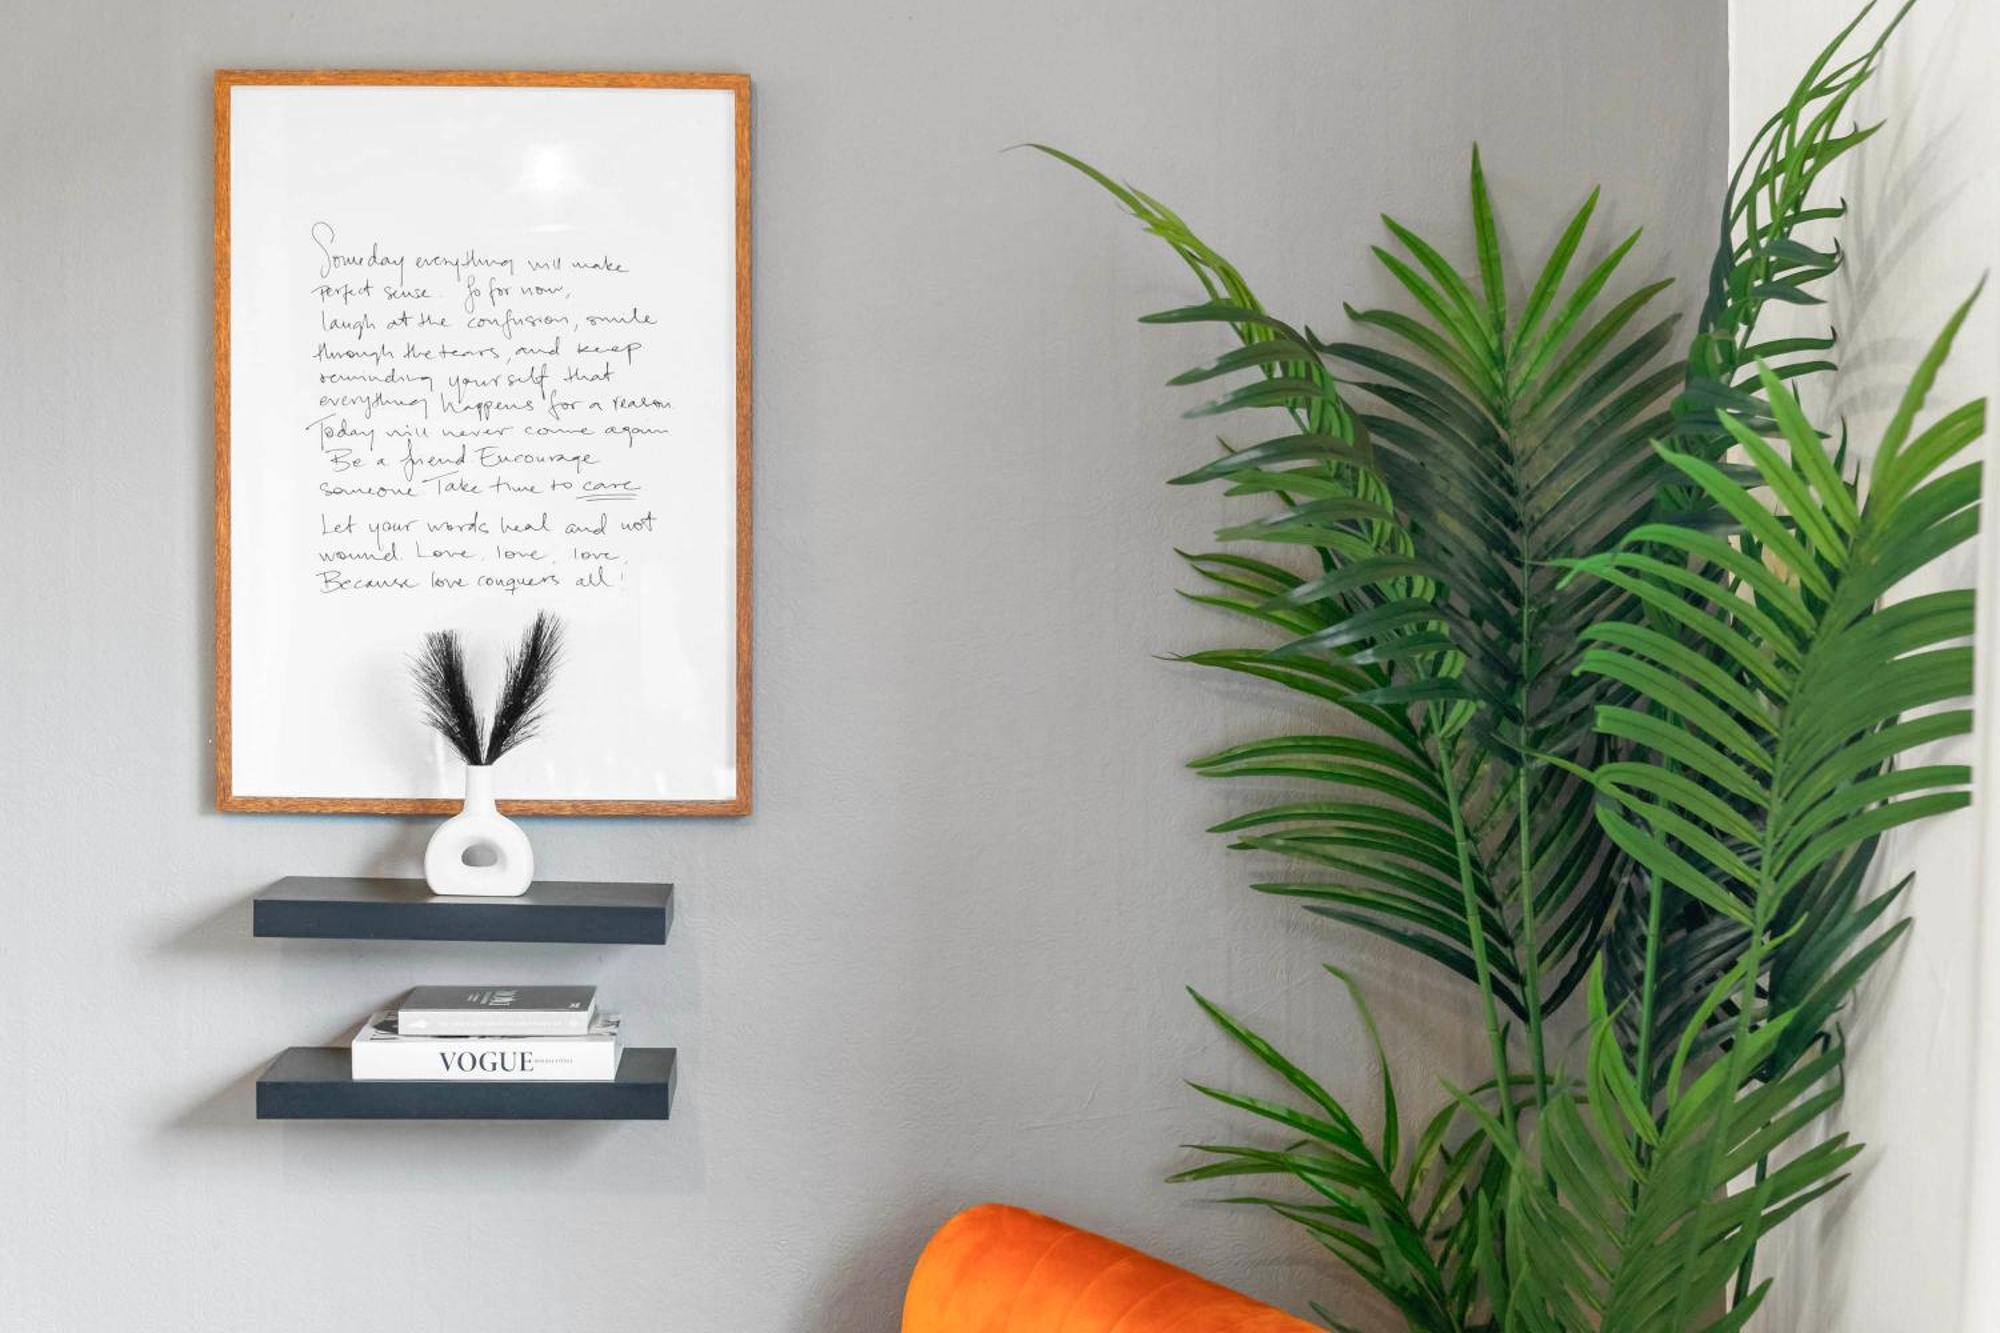 Someday everything will make
perfect sense. So for now,
laugh at the confusion, smile
through the tears, and keep
reminding yourself that
everything happens for a reason.
Today will never come again
Be a friend Encourage
someone Take time to care
Let your words heal and not
wound. Love, love, love,
Because love conquers all!
VOGUE